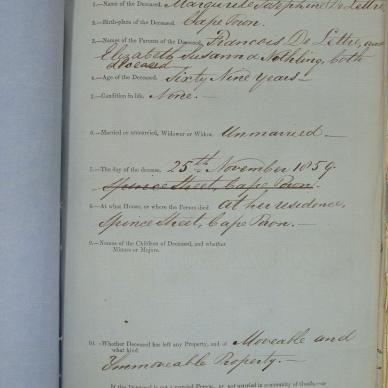 1.—Name of the Deceased. Marguerite Josephine De Lettre
2.—Birth-place of the Deceased. Cape Town.
3.—Names of the Parents of the Deceased. Francois De Lettre, and
Elizabeth Susanna Nothling, both
deceased—
4.—Age of the Deceased. Sixty Nine Years—
5.—Condition in life. None.—
6.—Married or unmarried, Widower or Widow. Unmarried.—
7.—The day of the decease. 25th November 1859.
Spence Street, Cape Town.
8.—At what House, or where the Person died at her residence,
Spence Street, Cape Town.—
9.—Names of the Children of Deceased, and whether
Minors or Majors.
10.—Whether Deceased has left any Property, and of Moveable and
what kind.
Immoveable Property.—
If the Deceased is not a married Person, or not married in community of Goods,—